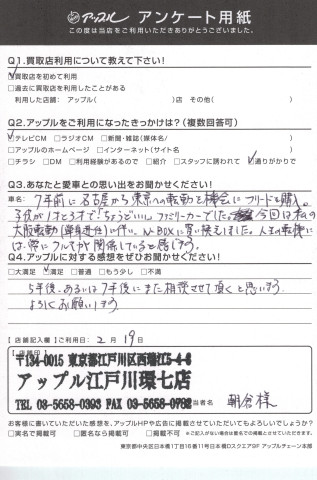 アップル アンケート用紙
この度は当店をご利用いただきありがとうございました。
Q1.買取店利用について教えて下さい!
☑買取店を初めて利用
□過去に買取店を利用したことがある
利用した店舗: アップル( )店 その他( )
Q2.アップルをご利用になったきっかけは?(複数回答可)
☑テレビCM □ラジオCM □新聞・雑誌(媒体名/ )
□アップルのホームページ □インターネット(サイト名 )
□チラシ □DM □利用経験があるので □紹介 □スタッフに誘われて ☑通りがかりで
Q3.あなたと愛車との思い出をお聞かせください!
車名: 7年前に名古屋から東京への転勤を機会にフリードを購入。
子供が1才と3才で「ちょうどいい」ファミリーカーでした。今回は私の
大阪転勤(単身赴任)に伴い、N-BOXに買い換えました。人生の転機に
は、常にクルマが関係していると感じます。
Q4.アップルに対する感想をぜひお聞かせください!
□大満足 ☑満足 □普通 □もう少し □不満
5年後、あるいは7年後にまた相談させて頂くと思います。
よろしくお願いします。
【店舗記入欄】ご利用日: 2月 19日
【店舗印】
〒134-0015 東京都江戸川区西瑞江5-4-6
アップル江戸川環七店
TEL 03-5658-0393 FAX 03-5658-0782
当者名 朝倉様
お客様に書いていただいた感想を、アップルHPや広告に掲載させていただいてもよろしいでしょうか?
□実名で掲載可 □匿名なら掲載可 □掲載不可 ※ご記入がない場合は匿名での掲載とさせていただきます。
東京都中央区日本橋1丁目16番11号日本橋Dスクエア9F アップルチェーン本部